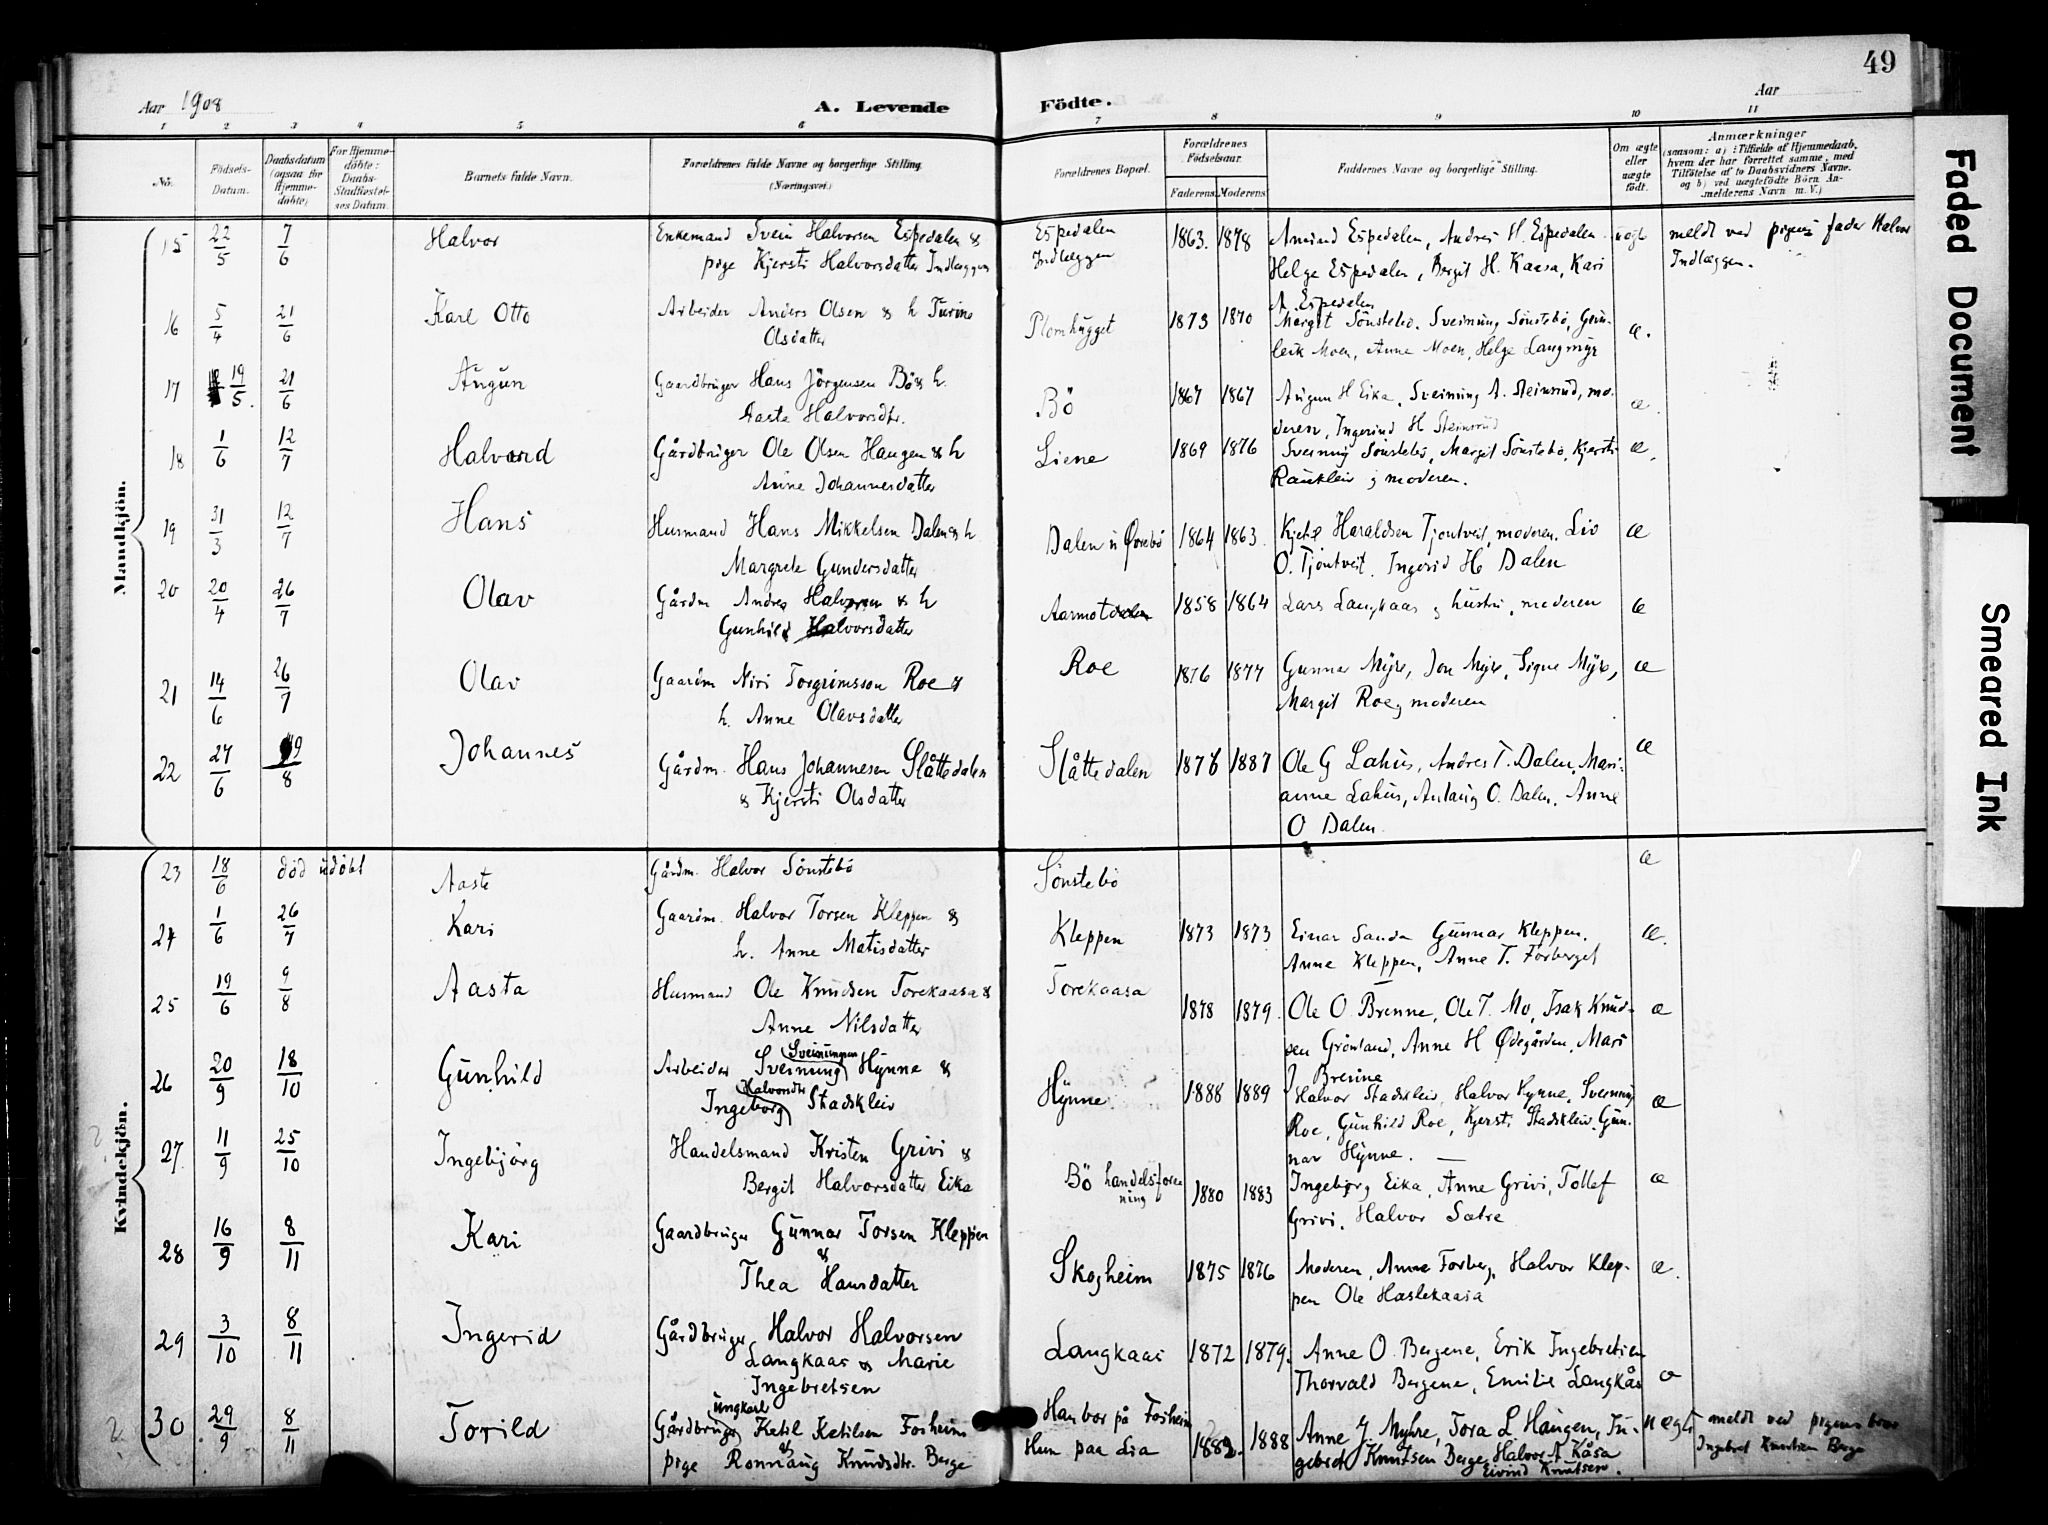 49
Aar 1908
A. Levende
Födte.
Aar
1 2 3 4 5 6 7 8 9 10 11
No.
Födsels-
Datum.
Daabsdatum
(ogsaa for
Hjemme-
døbte)
For Hjemme-
døbte:
Daabs-
Stadfæstel-
ses Datum.
Barnets fulde Navn.
Forældrenes fulde Navne og borgerlige Stilling.
(Næringsvei.)
Forældrenes Bopæl.
Forældrenes
Födselsaar.
Faderens. Moderens.
Faddernes Navne og borgerlige Stilling.
Om ægte
eller
uægte
födt.
Anmærkninger
(saasom: a) i Tilfælde af Hjemmedaab,
hvem der har forrettet samme, med
Tilföielse af to Daabsvidners Navne.
og b) ved uægtefödte Börn An-
melderens Navn m. V.)
Mandkjön.
15 22/5 7/6 Halvor Enkemand Svein Halvorsen Espedalen & Espedalen 1863. 1878 Amund Espedalen, Andres H. Espedalen uægt meldt ved pigens fader Halvor
pige Kjersti Halvorsdatter Indlæggen Indlæggen Helge Espedalen, Bergit H. Kaasa, Kari Indlæggen.
A Espedalen
16 5/4 21/6 Karl Otto Arbeider Anders Olsen & h Turine Plomhugget 1873 1870 Margit Sönstebö. Sveinung Sönstebö, Gun- æ.
Olsdatter leik Moen, Anne Moen, Helge Langmyr
17 19/5. 21/6 Augun Gaardbruger Hans Jörgensen Bö & h. Bö 1867 1867 Augun H Eika, Sveinung A. Steinsrud, mo- æ.
Aaste Halvorsdtr. deren, Ingerid H Steinsrud
18 1/6 12/7 Halvord Gårdbruger Ole Olsen Haugen & h Liene 1869 1876 Sveinung Sönstebö, Margit Sönstebö, Kjersti æ.
Anne Johannesdatter Raukleiv, moderen.
19 31/3 12/7 Hans Husmand Hans Mikkelsen Dalen & h Dalen u Øvrebö 1864 1863. Kjetil Haraldsen Tjontveit, moderen, Liv æ
Margrete Gundersdatter O. Tjöntveit. Ingerid H Dalen
20 20/4 26/7 Olav Gårdm Andres Halvorsen & h Aarmotdalen 1858 1864 Lars Langkaas, hustru, moderen æ
Gunhild Halvorsdatter
21 14/6 26/7 Olav Gaardm Niri Torgrimsson Roe & Roe 1876 1877 Gunnar Myhr, Jon Myhr, Signe Myhr, æ
h. Anne Olavsdatter Margit Roe, moderen
22 27/6 9/8 Johannes Gårdm. Hans Johannesen Slåttedalen Slåttedalen 1876 1887 Ole G Lahus, Andres T. Dalen, Mari- æ
& Kjersti Olsdatter anne Lahus, Anlaug O. Dalen, Anne
O Dalen.
Kvindekjön.
23 18/6 död udöbt Aaste Gårdm. Halvor Sönstebö Sönstebö æ
24 1/6 26/7 Kari Gaardm. Halvor Torsen Kleppen & Kleppen 1873 1873 Einar Sanda Gunnar Kleppen. æ.
h. Anne Matisdatter Anne Kleppen, Anne T. Forberget
25 19/6 9/8 Aasta Husmand Ole Knudsen Torekaasa & Torekaasa 1878 1879. Ole O. Brenne, Ole T. Mo, Isak Knud- æ
Anne Nilsdatter sen Grönland, Anne H Ødegården, Mari
J Brenne
26 20/9 18/10 Gunhild Arbeider Sveinung Sveinungsen Hynne & Hynne 1888 1889 Halvor Stadskleiv, Halvor Hynne, Sveinung æ
Ingeborg Halvorsdtr Stadskleiv Roe, Gunhild Roe, Kjersti Stadskleiv, Gun-
nar Hynne. —
27 11/9 25/10 Ingebjörg Handelsmand Kristen Grivi & Bö handelsfore 1880 1883 Ingebjörg Eika, Anne Grivi, Tollef æ
Bergit Halvorsdatter Eika ning Grivi, Halvor Sætre
28 16/9 8/11 Kari Gaardbruger Gunnar Torsen Kleppen Skogheim 1875 1876 Moderen, Anne Forberg, Halvor Klep- æ.
& Thea Hansdatter pen Ole Haslekaasa
29 3/10 8/11 Ingerid Gårdbruger Halvor Halvorsen Langkaas 1872 1879. Anne O. Bergene, Erik Ingebretsen æ
Langkaas & Marie Thorvald Bergene, Emilie Langkås
Ingebretsen
30 29/9 8/11 Torild Gårdbruger ungkarl Ketil Ketilsen Forheim Han bor på Forheim 1882. 1888 Anne J. Myhre, Tora L Haugen, In- uægte meldt ved pigens bror
& pige Rønnaug Knudsdtr. Berge Hun paa Lia gebret Knutsen Berge, Halvor A Kåsa Ingebret Knutsen Berge
Eivind Knutsen.
Faded Document
Smeared Ink